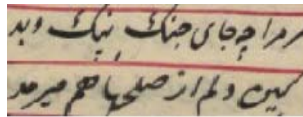 مر مرا چه جای جنک نیک و بد
کین دلم از صلحها هم میرمد